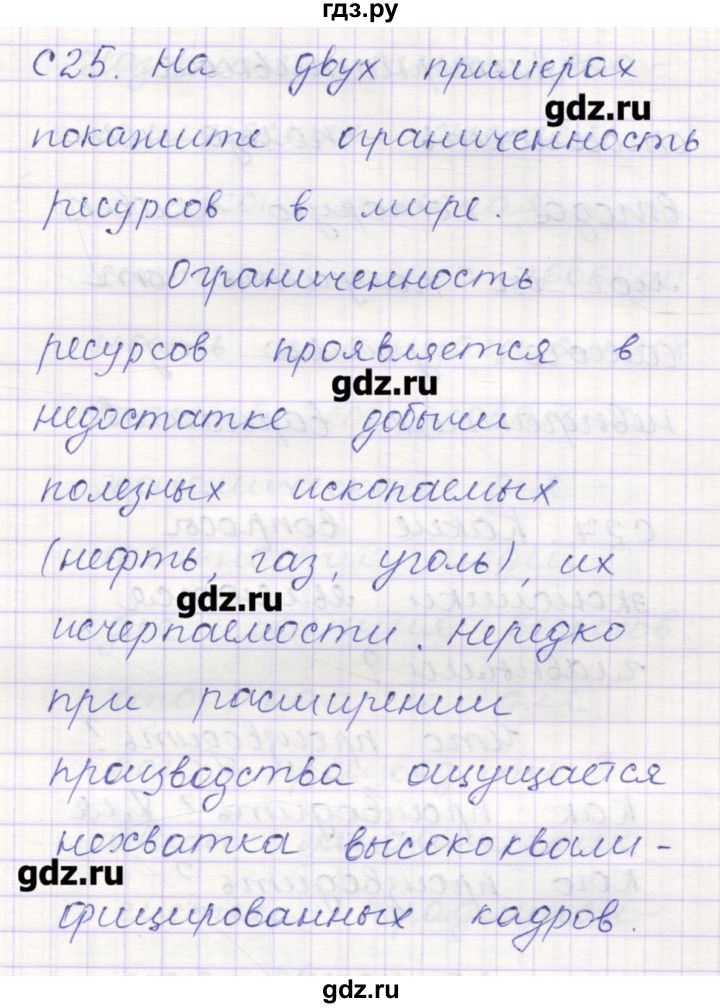 гдз.ру
с 25. На двух примерах
gdz.ru
покажите ограниченность
ресурсов в мире.
Ограниченность
ресурсов проявляется в
gdz.ru
недостатке добычи
полезных ископаемых
(нефть, газ, уголь), их
gdz.ru
исчерпаемости. Нередко
при расширении
производства ощущается
нехватка высококвали-
gdz.ru
фицированных кадров.
gdz.ru